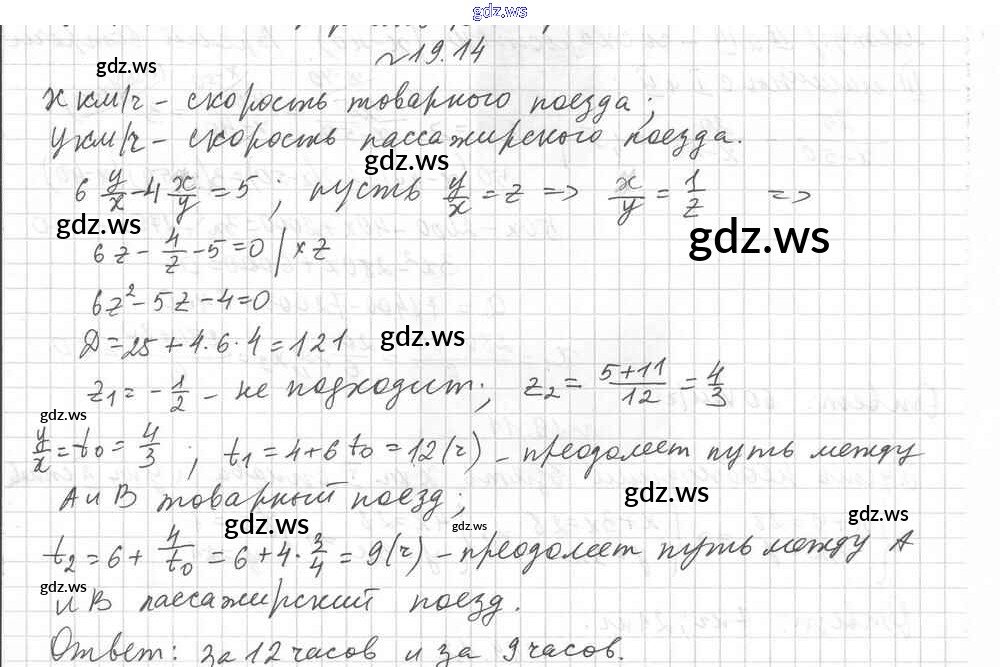 gdz.ws
№19.14
gdz.ws
x км/ч – скорость товарного поезда;
y км/ч – скорость пассажирского поезда.
gdz.ws
6 y/x – 4 x/y = 5; пусть y/x = z => x/y = 1/z =>
gdz.ws
gdz.ws
6z – 4/z – 5 = 0 | × z
6z² – 5z – 4 = 0
gdz.ws
D = 25 + 4·6·4 = 121
z₁ = – 1/2 – не подходит; z₂ = (5+11)/12 = 4/3
gdz.ws
y/x = t₀ = 4/3; t₁ = 4 + 6 t₀ = 12 (ч) – преодолеет путь между
А и В товарный поезд;
gdz.ws
gdz.ws
gdz.ws
gdz.ws
t₂ = 6 + 4/t₀ = 6 + 4 · 3/4 = 9 (ч) – преодолеет путь между А
gdz.ws
и В пассажирский поезд.
Ответ: за 12 часов и за 9 часов.